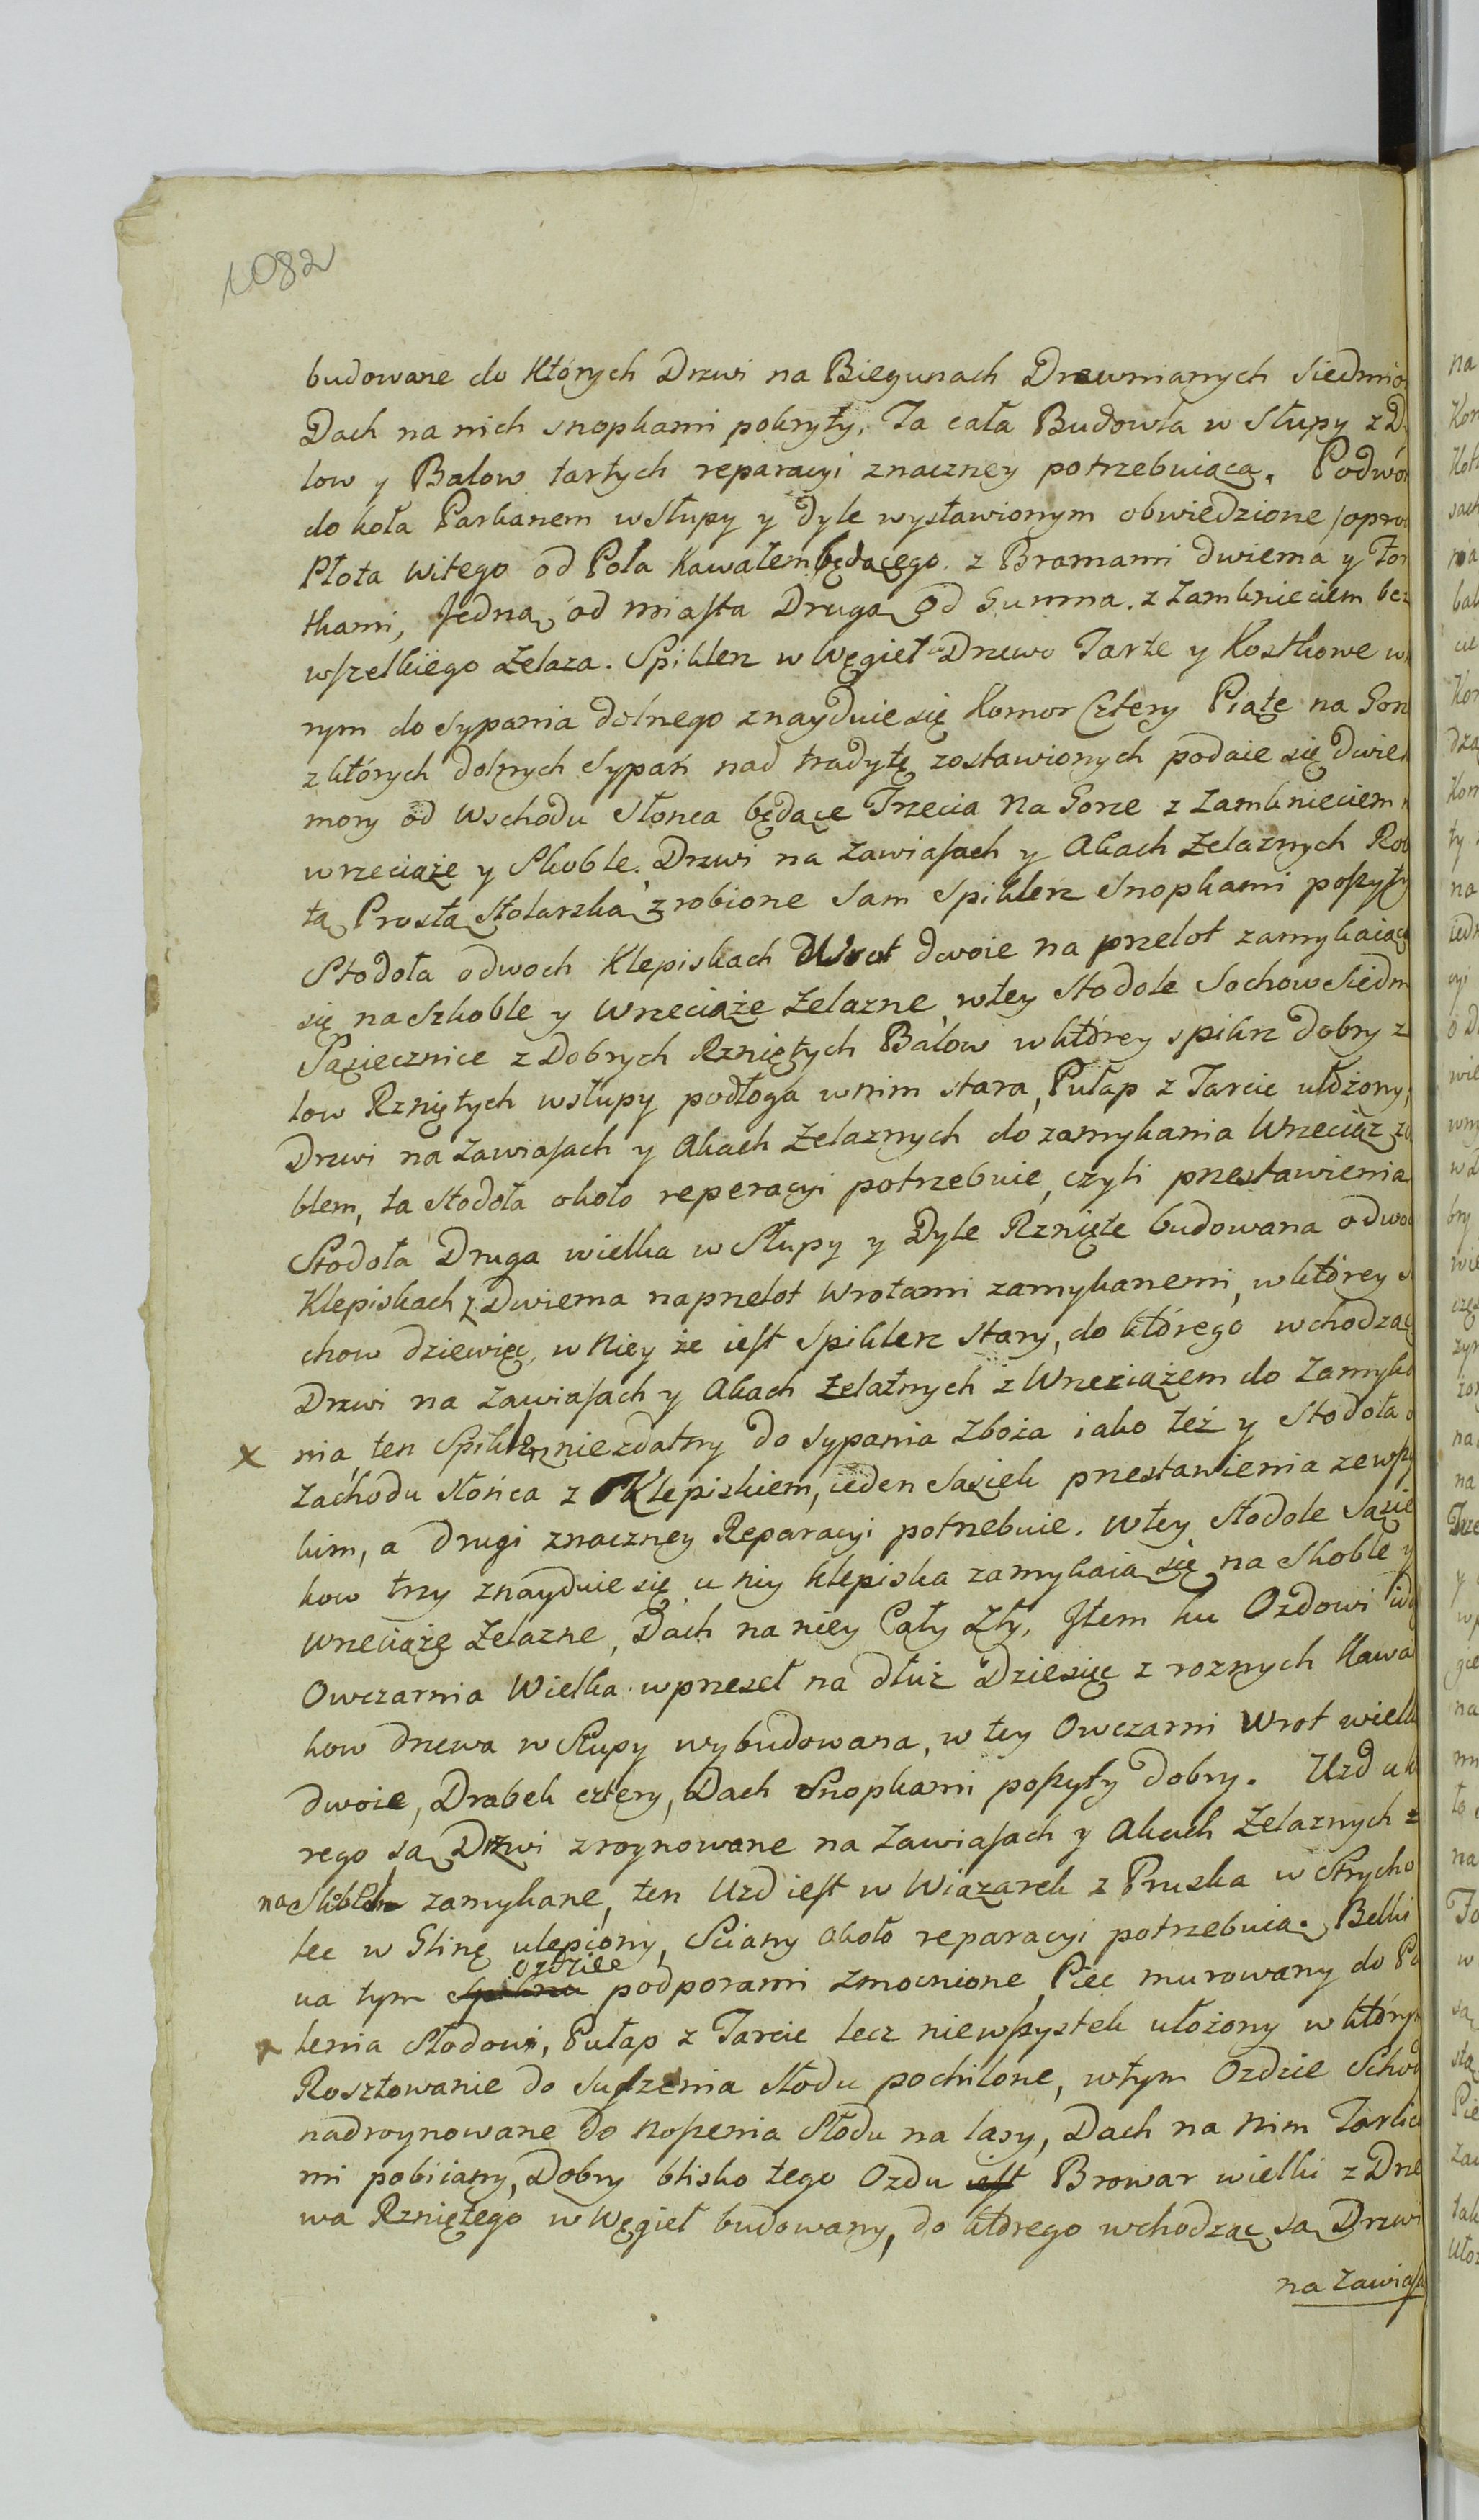 1082
budowane do których Drzwi na Biegunach Drewnianych siedmio
Dach na nich snopkami pokryty, Ta cała Budowla w Słupy z D
low y Balow tartych reparacyi znaczney potrzebuiąca. Podwór
do koła Parkanem w Słupy y dyle wystawionym obwiedzione /opro
Płota witego od Pola Kawałem będącego. z Bramami dwiema y For
tkami, Jedną od miasta Drugą od Gumna. z Zamknieciem bez
wszelkiego żelaza. Spiklerz w Węgieł Drzewo Tarte y Kostkowe w
rym do sypania dolnego znayduie się Komor Cztery Piąte na Gorz
z których dolnych Sypań nad tradytę zostawionych podaie się dwie
mory od Wschodu Słonca będące Trzecia na Gorze z Zamknieciem
wrzeciąże y Skoble. Drzwi na zawiasach y Akach Żelaznych Rob
tą Prostą Stolarską zrobione Sam Spiklerz Snopkami poszyty
Stodoła o dwoch Klepiskach Wrot dwoie na przelot zamykaiące
się na Szkoble y Wrzeciąże Żelazne, w tey Stodole Sochow Siedm
Sąsiecznice z Dobrych Rzniętych Balow w którey spikrz dobry z
low Rzniętych w słupy podłoga w nim stara, Pułap z Tarcic ułożony,
Drzwi na zawiasach y Akach Żelaznych do zamykania Wrzeciąz z
blem, ta Stodoła około reperacyi potrzebuie, czyli przestawienia
Stodoła Druga wielka w Słupy y Dyle Rznięte budowana o dwo
Klepiskach z Dwiema na przelot Wrotami zamykanemi, w którey
chow dziewięć, w Niey że iest Spiklerz Stary, do którego wchodząc
Drzwi na Zawiasach y Akach Żelaznych z Wrzeciążem do Zamyka
x nia, ten Spiklerz niezdatny do sypania Zboża iako też y Stodoła
Zachodu słońca z Klepiskiem, ieden Sąsiek przestawienia ze wszy
kim, a drugi znaczney Reparacyi potrzebuie. w tey Stodole Sąsie
kow trzy znayduie się u niy klepiska zamykaią się na Skoble y
Wrzeciąże Żelazne, Dach na niey Cały Zły, Jtem ku Ozdowi id
Owczarnia Wielka w przeseł na dłuż Dziesięć z roznych Kawa
kow drzewa w Słupy wybudowana, w tey Owczarni Wrot wielk
dwoie, Drabek cztery, Dach Snopkami poszyty dobry. Uzd u k
rego są Drzwi zroynowane na Zawiasach y Akach Żelaznych z
na Skobel zamykane, ten Uzd iest w Wiązarek z Pruska w Strycho
lec w Glinę ulepiony, Sciany około reparacyi potrzebuią. Belki
ozdzie
ua tym podporami zmocnione, Piec murowany do Pa
lenia Słodowi, Pułap z Tarcic lecz niewszystek ułożony w który
Rosztowanie do Suszenia Słodu pochilone, w tym Ozdzie Schod
nadroynowane do noszenia Słodu na lasy, Dach na nim Tarlica
mi pobiiany, Dobry blisko tego Ozdu iest Browar wielki z Drze
wa Rzniętego w Węgieł budowany, do którego wchodząc są Drzwi
na zawias